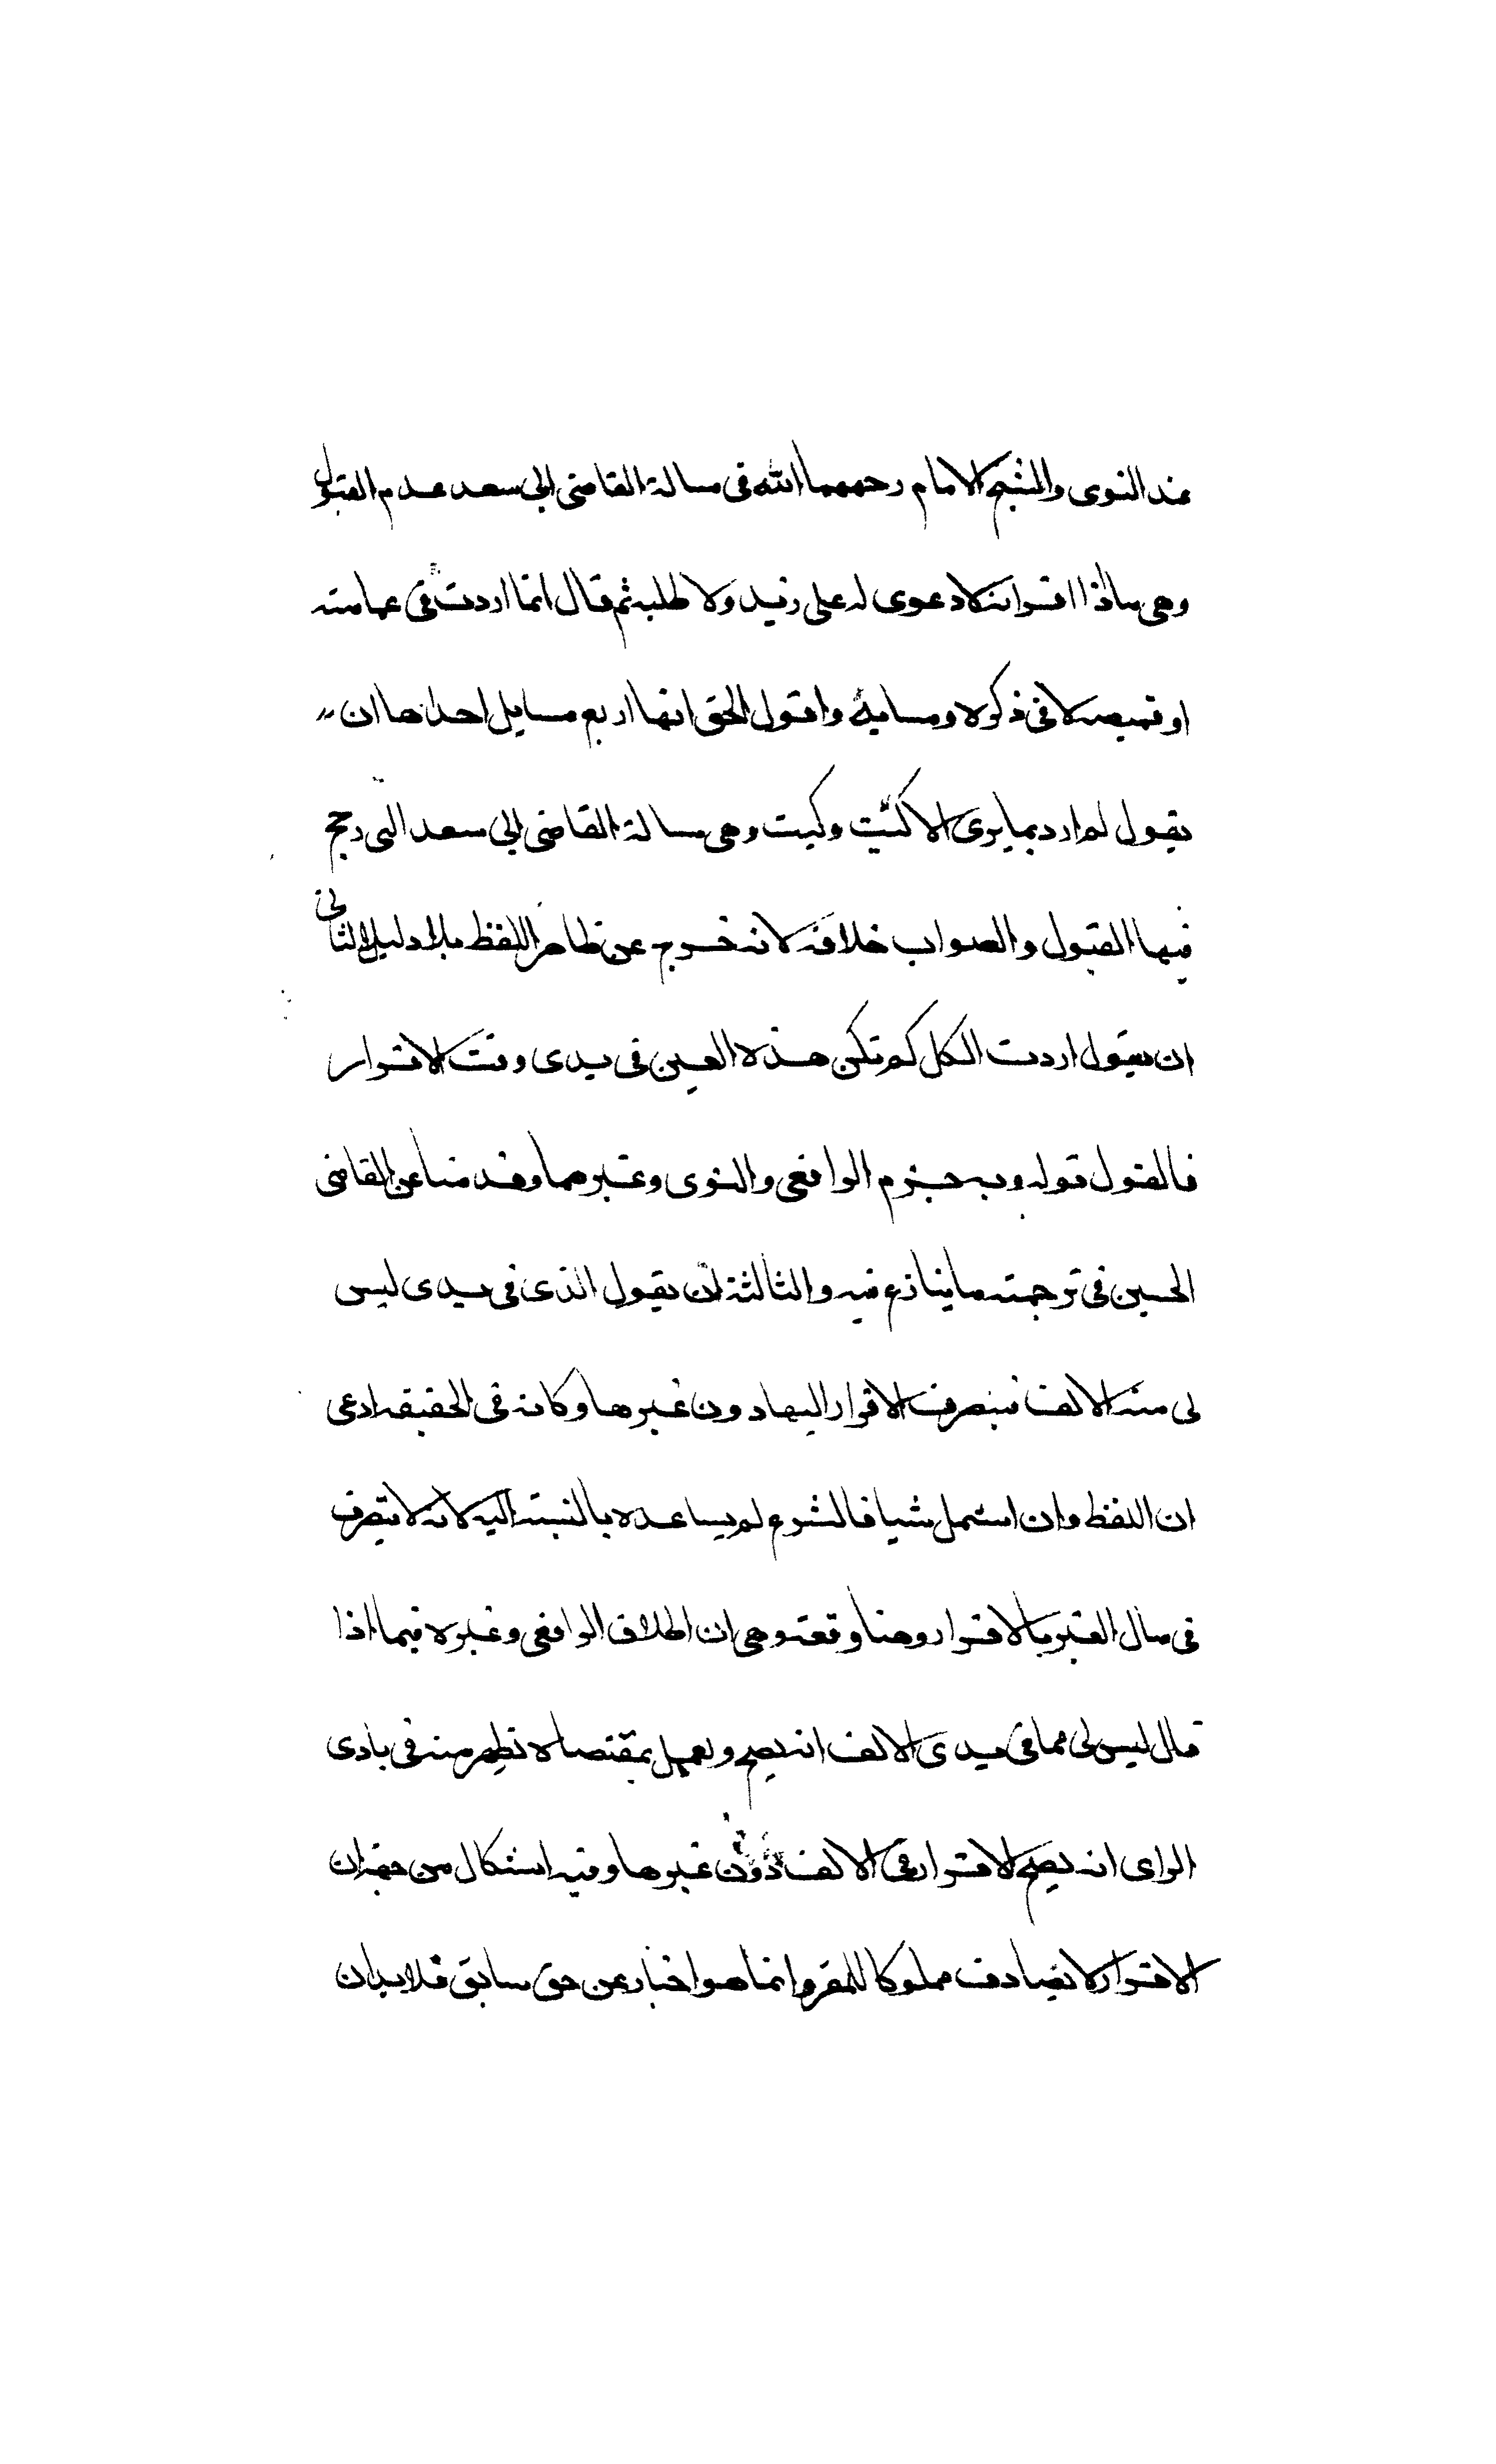 عند النووى والشيخ الامام رحمهما الله فى مسالة القاضى ابى سعد عدم القبول
وهى ما اذا اقر انه لا دعوى له على زيد ولا طلبه ثم قال انما اردت فى عمامته
او قميصه لا فى ذكره ومسايله واقول الحق انها اربع مسايل احداها ان
يقول لم ارد بما يرى الا كيت وكيت وهى مسالة القاضى ابى سعد التى رجح
فيها القبول والصواب خلافه لانه خرج عن ظاهر اللفظ بلا دليل الثانى
ان يقول اردت الكل لم تكن هذه العين فى يدى وقت الاقرار
فالقول قوله وبه جزم الرافعى والنووى وغيرهما وقدمناه عن القاضى
الحسين فى ترجمته ما ينازع فيه والثالثة ان يقول الذى فى يدى ليس
لى منه الالف فينصرف الاقرار اليها دون غيرها وكانه فى الحقيقه ادعى
ان اللفظ وان استمل شيا فالشرع لم يساعده بالنسبة اليه لانه لا يتصرف
فى مال الغير بالاقرار وهنا وقعة وهى ان اطلاق الرافعى وغيره فيما اذا
قال ليس لى مما فى يدى الالف انه يصح ويعمل بمقتضاه يظهر منه فى بادى
الراى انه يصح الاقرار فى الالف دون غيرها وفيه اشكال من جهة ان
الاقرار لا يصادف مملوكا للمقر وانما هو اخبار عن حق سابق فلا بد ان